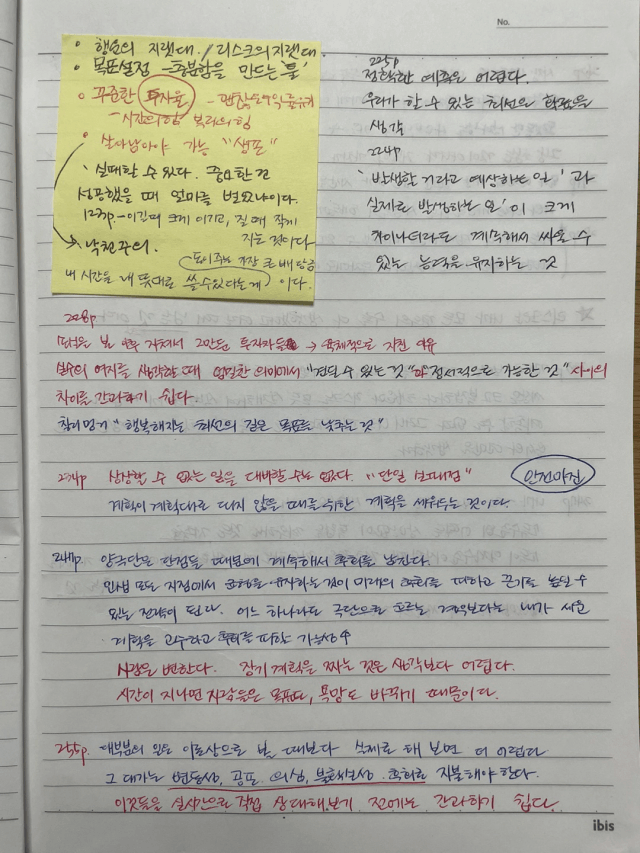 No.
• 행운의 지렛대. / 리스크의 지렛대.
• 목표설정 - 충분함을 만드는 '룰'
• 꾸준한 투자율 - 괜찮은 수익률 유지
- 시간의 힘 복리의 힘
• 살아남아야 가능 "생존"
실패할 수 있다. 중요한 건
성공했을 때 얼마를 벌었나이다.
123p. - 이길때 크게 이기고, 질 때 작게
지는 것이다
낙천주의.
돈이 주는 가장 큰 배당금
내 시간을 내 뜻대로 쓸 수 있다는 게 이다.
225p
정확한 예측은 어렵다.
우리가 할 수 있는 최선은 확률을
생각
224p
'발생할 거라고 예상하는 일'과
실제로 발생하는 일'이 크게
차이나더라도 계속해서 싸울 수
있는 능력을 유지하는 것
228p
투자자들 → 육체적으로 지친 여유
실수의 여지를 생각할 때 엄밀한 의미에서 "견딜 수 있는 것"과 "정서적으로 가능한 것" 사이의
차이를 간과하기 쉽다.
찰리 멍거 "행복해지는 최선의 길은 목표를 낮추는 것"
234p 상상할 수 없는 일을 대비할 수는 없다. "단일 실패점" 안전마진
계획이 계획대로 되지 않을 때를 위한 계획을 세워두는 것이다.
248p 양극단은 단점들 때문에 계속해서 후회를 남긴다.
인생 모든 지점에서 균형을 유지하는 것이 미래의 후회를 피하고 끈기를 높일 수
있는 전략이 된다. 어느 하나라도 극단으로 흐르는 경우보다는 내가 세운
계획을 고수하고 후회를 피할 가능성↑
사람은 변한다. 장기 계획을 짜는 것은 생각보다 어렵다.
시간이 지나면 사람들은 목표도, 욕망도 바뀌기 때문이다.
255p. 대부분의 일은 이론상으로 볼 때보다 실제로 해 보면 더 어렵다
그 대가는 변동성, 공포, 의심, 불확실성, 후회로 지불해야 한다.
이것들을 실시간으로 직접 상대해보기 전에는 간과하기 쉽다.
ibis